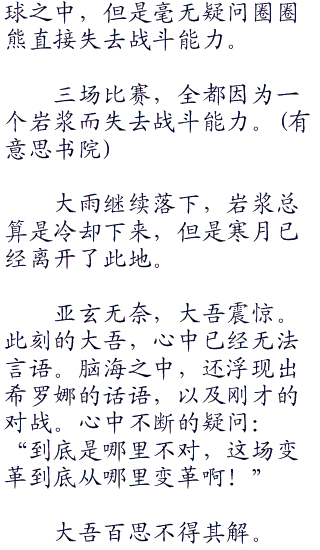 球之中，但是毫无疑问圈圈
熊直接失去战斗能力。
三场比赛，全都因为一
个岩浆而失去战斗能力。(有
意思书院)
大雨继续落下，岩浆总
算是冷却下来，但是寒月已
经离开了此地。
亚玄无奈，大吾震惊。
此刻的大吾，心中已经无法
言语。脑海之中，还浮现出
希罗娜的话语，以及刚才的
对战。心中不断的疑问：
“到底是哪里不对，这场变
革到底从哪里变革啊！”
大吾百思不得其解。